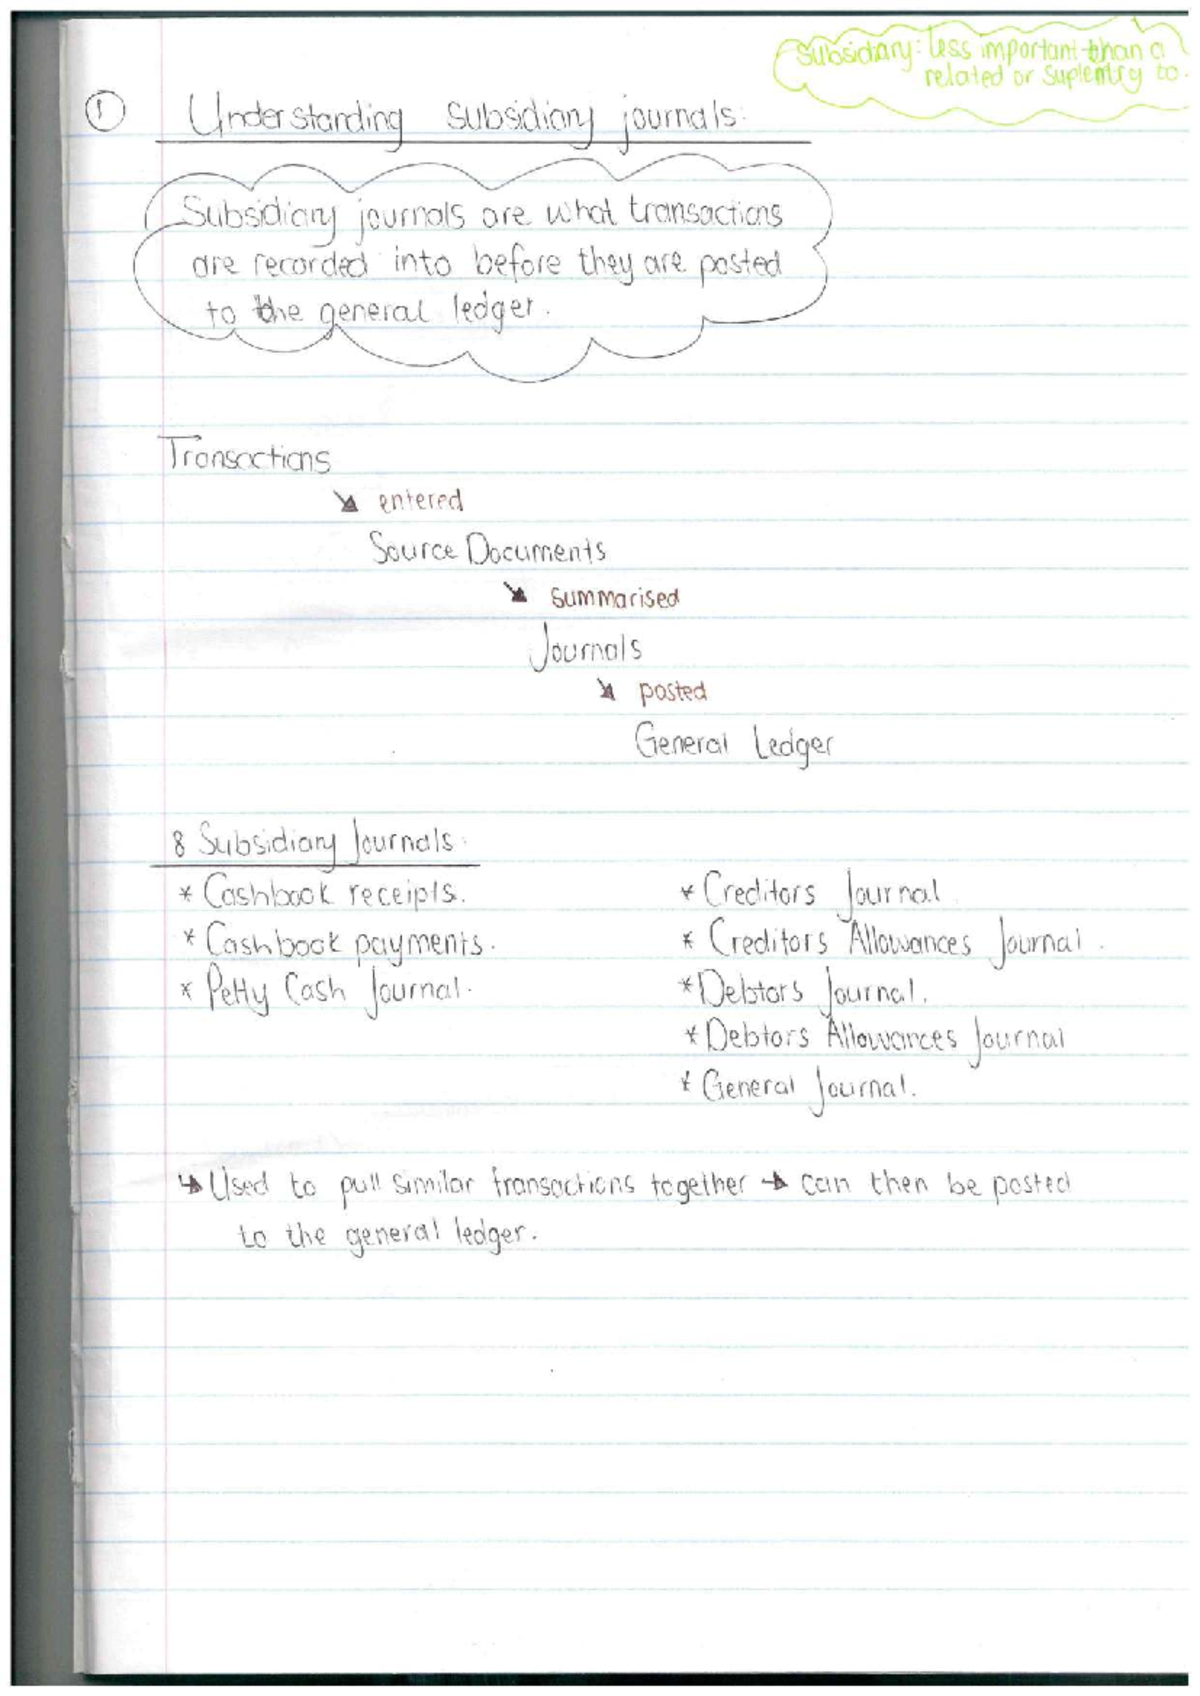 Subsidiary: less important than a
related or suplentry to.
① Understanding subsidiary journals:
Subsidiary journals are what transactions
are recorded into before they are posted
to the general ledger.
Transactions
↘ entered
Source Documents
↘ summarised
Journals
↘ posted
General Ledger
8 Subsidiary Journals:
* Cashbook receipts.
* Cashbook payments.
* Petty Cash Journal.
* Creditors Journal
* Creditors Allowances Journal.
* Debtors Journal.
* Debtors Allowances Journal
* General Journal.
↳ Used to pull similar transactions together → can then be posted
to the general ledger.